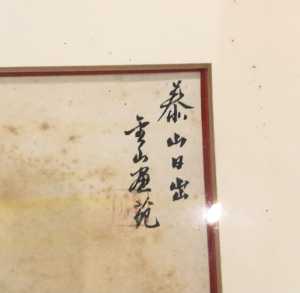 泰山日出
金山画苑